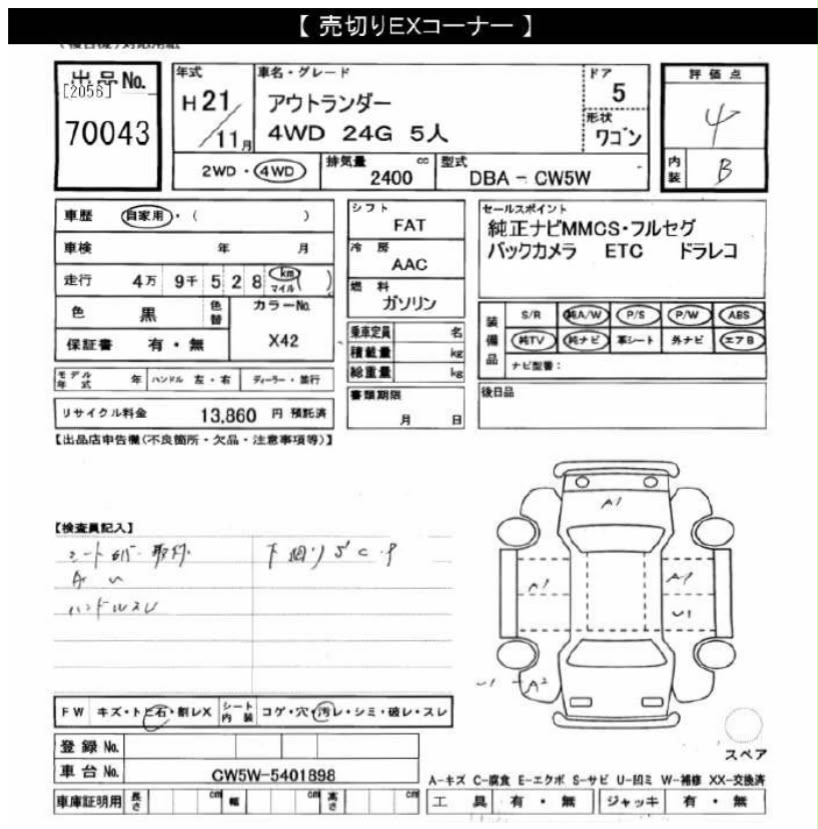 【 売切りEXコーナー 】
出品No.
[2056]
70043
年式
H21/11月
車名・グレード
アウトランダー
4WD 24G 5人
ドア
5
形状
ワゴン
評価点
4
内装 B
2WD・4WD
排気量 cc
2400
型式
DBA - CW5W
車歴 自家用・( )
車検 年 月
走行 4万 9千 5 2 8 km マイル ( )
色 黒 色替
カラーNo.
X42
保証書 有・無
モデル年式 年 ハンドル 左・右 ディーラー・並行
リサイクル料金 13,860 円 預託済
シフト
FAT
冷房
AAC
燃料
ガソリン
乗車定員 名
積載量 kg
総重量 kg
書類期限
月 日
セールスポイント
純正ナビMMCS・フルセグ
バックカメラ ETC ドラレコ
装備品
S/R 純A/W P/S P/W ABS
純TV 純ナビ 革シート 外ナビ エアB
ナビ型番:
後日品
【出品店申告欄(不良箇所・欠品・注意事項等)】
【検査員記入】
下回りS C P
ハンドルスレ
A1
A1
A1
U1
U1
A2
FW キズ・トビ石・割レX
シート内装 コゲ・穴・汚レ・シミ・破レ・スレ
登録No.
車台No. CW5W-5401898
車庫証明用 長さ cm 幅 cm 高さ cm
スペア
A-キズ C-腐食 E-エクボ S-サビ U-凹ミ W-補修 XX-交換済
工具 有・無 ジャッキ 有・無